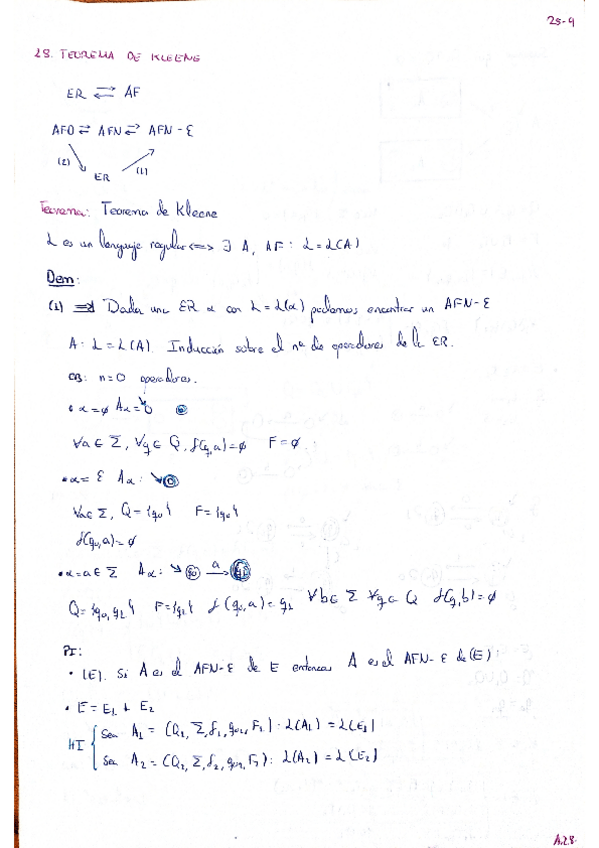 25-9
28. TEOREMA DE KLEENE
ER ⇄ AF
AFD ⇄ AFN ⇄ AFN-ε
(2) (1)
ER
Teorema: Teorema de Kleene
L es un lenguaje regular <=> ∃ A, AF : L = L(A)
Dem:
(1) => Dada una ER α con L = L(α) podemos encontrar un AFN-ε
A : L = L(A). Inducción sobre el nº de operadores de la ER.
CB: n=0 operadores.
• α=∅ Aα=
∀a∈Σ, ∀q∈Q, f(q,a)=∅ F=∅.
• α=ε Aα:
∀a∈Σ, Q={q₀} F={q₀}
f(q₀,a)=∅
• α=a∈Σ Aα: q₀ a q₁
Q={q₀,q₁} F={q₁} f(q₀,a)=q₁ ∀b∈Σ ∀q∈Q f(q,b)=∅
PI:
• (E). Si A es el AFN-ε de E entonces A es el AFN-ε de (E).
• E=E₁+E₂
HI
Sea A₁ = (Q₁,Σ,f₁,q₀₁,F₁) : L(A₁) = L(E₁)
Sea A₂ = (Q₂,Σ,f₂,q₀₂,F₂) : L(A₂) = L(E₂)
A.28